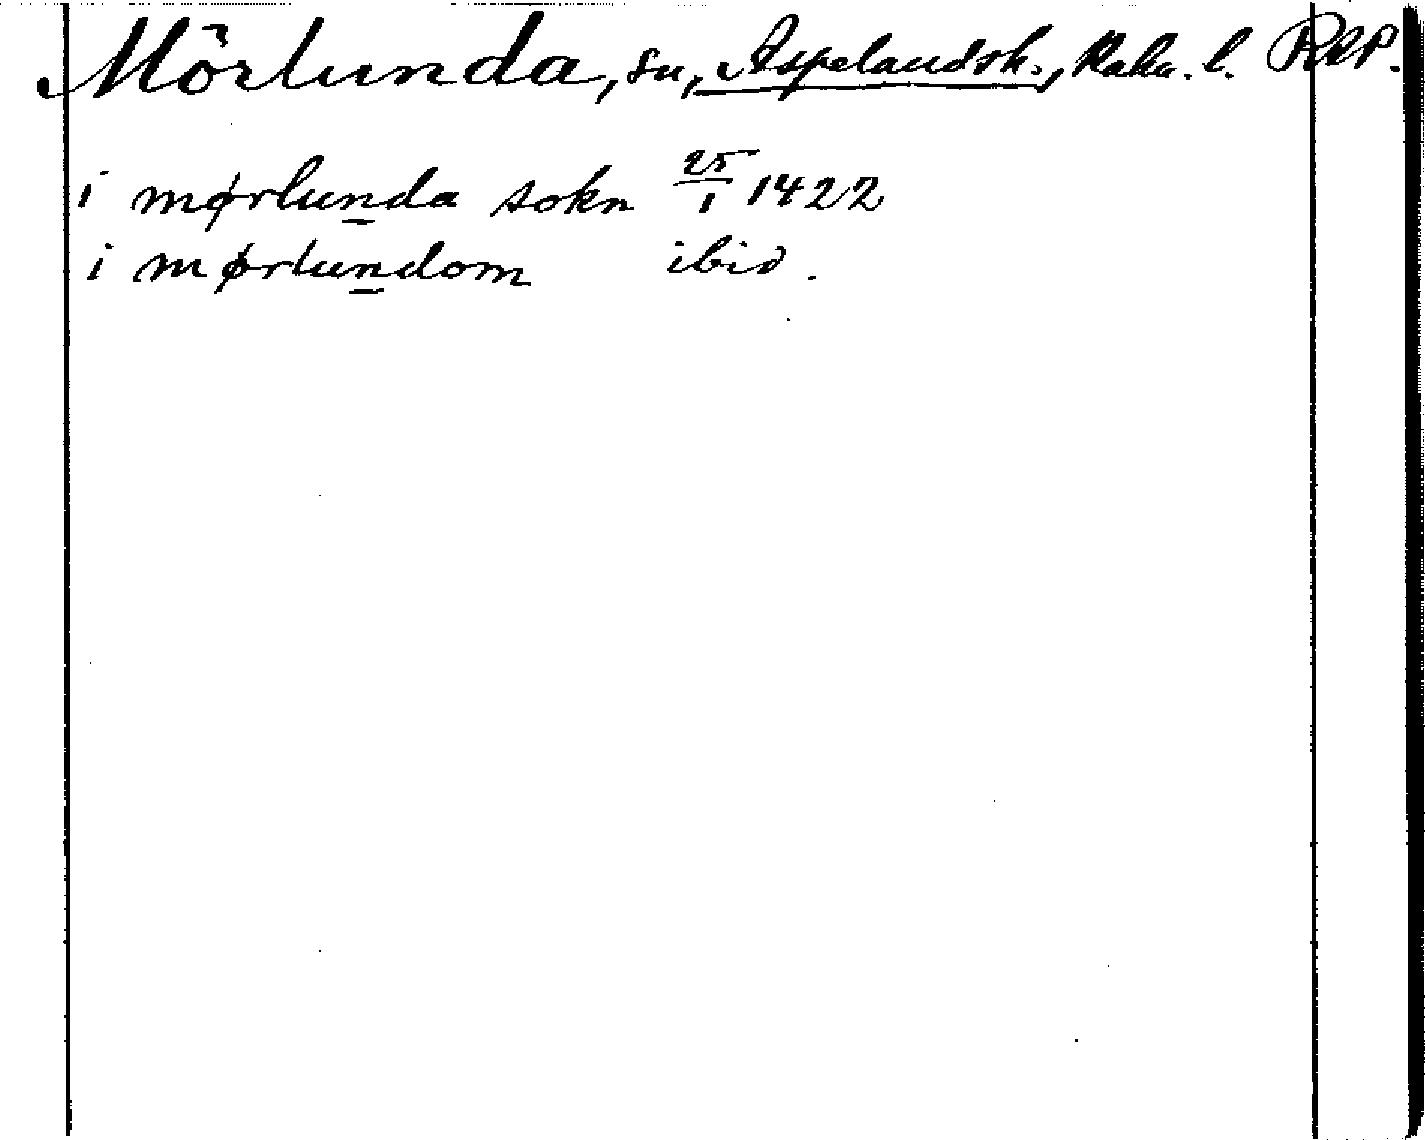 Mörlunda, sn, Aspelandsh., Kalm. l. RAP.
i mørlunda sokn 25/1 1422
i mørlundom ibid.